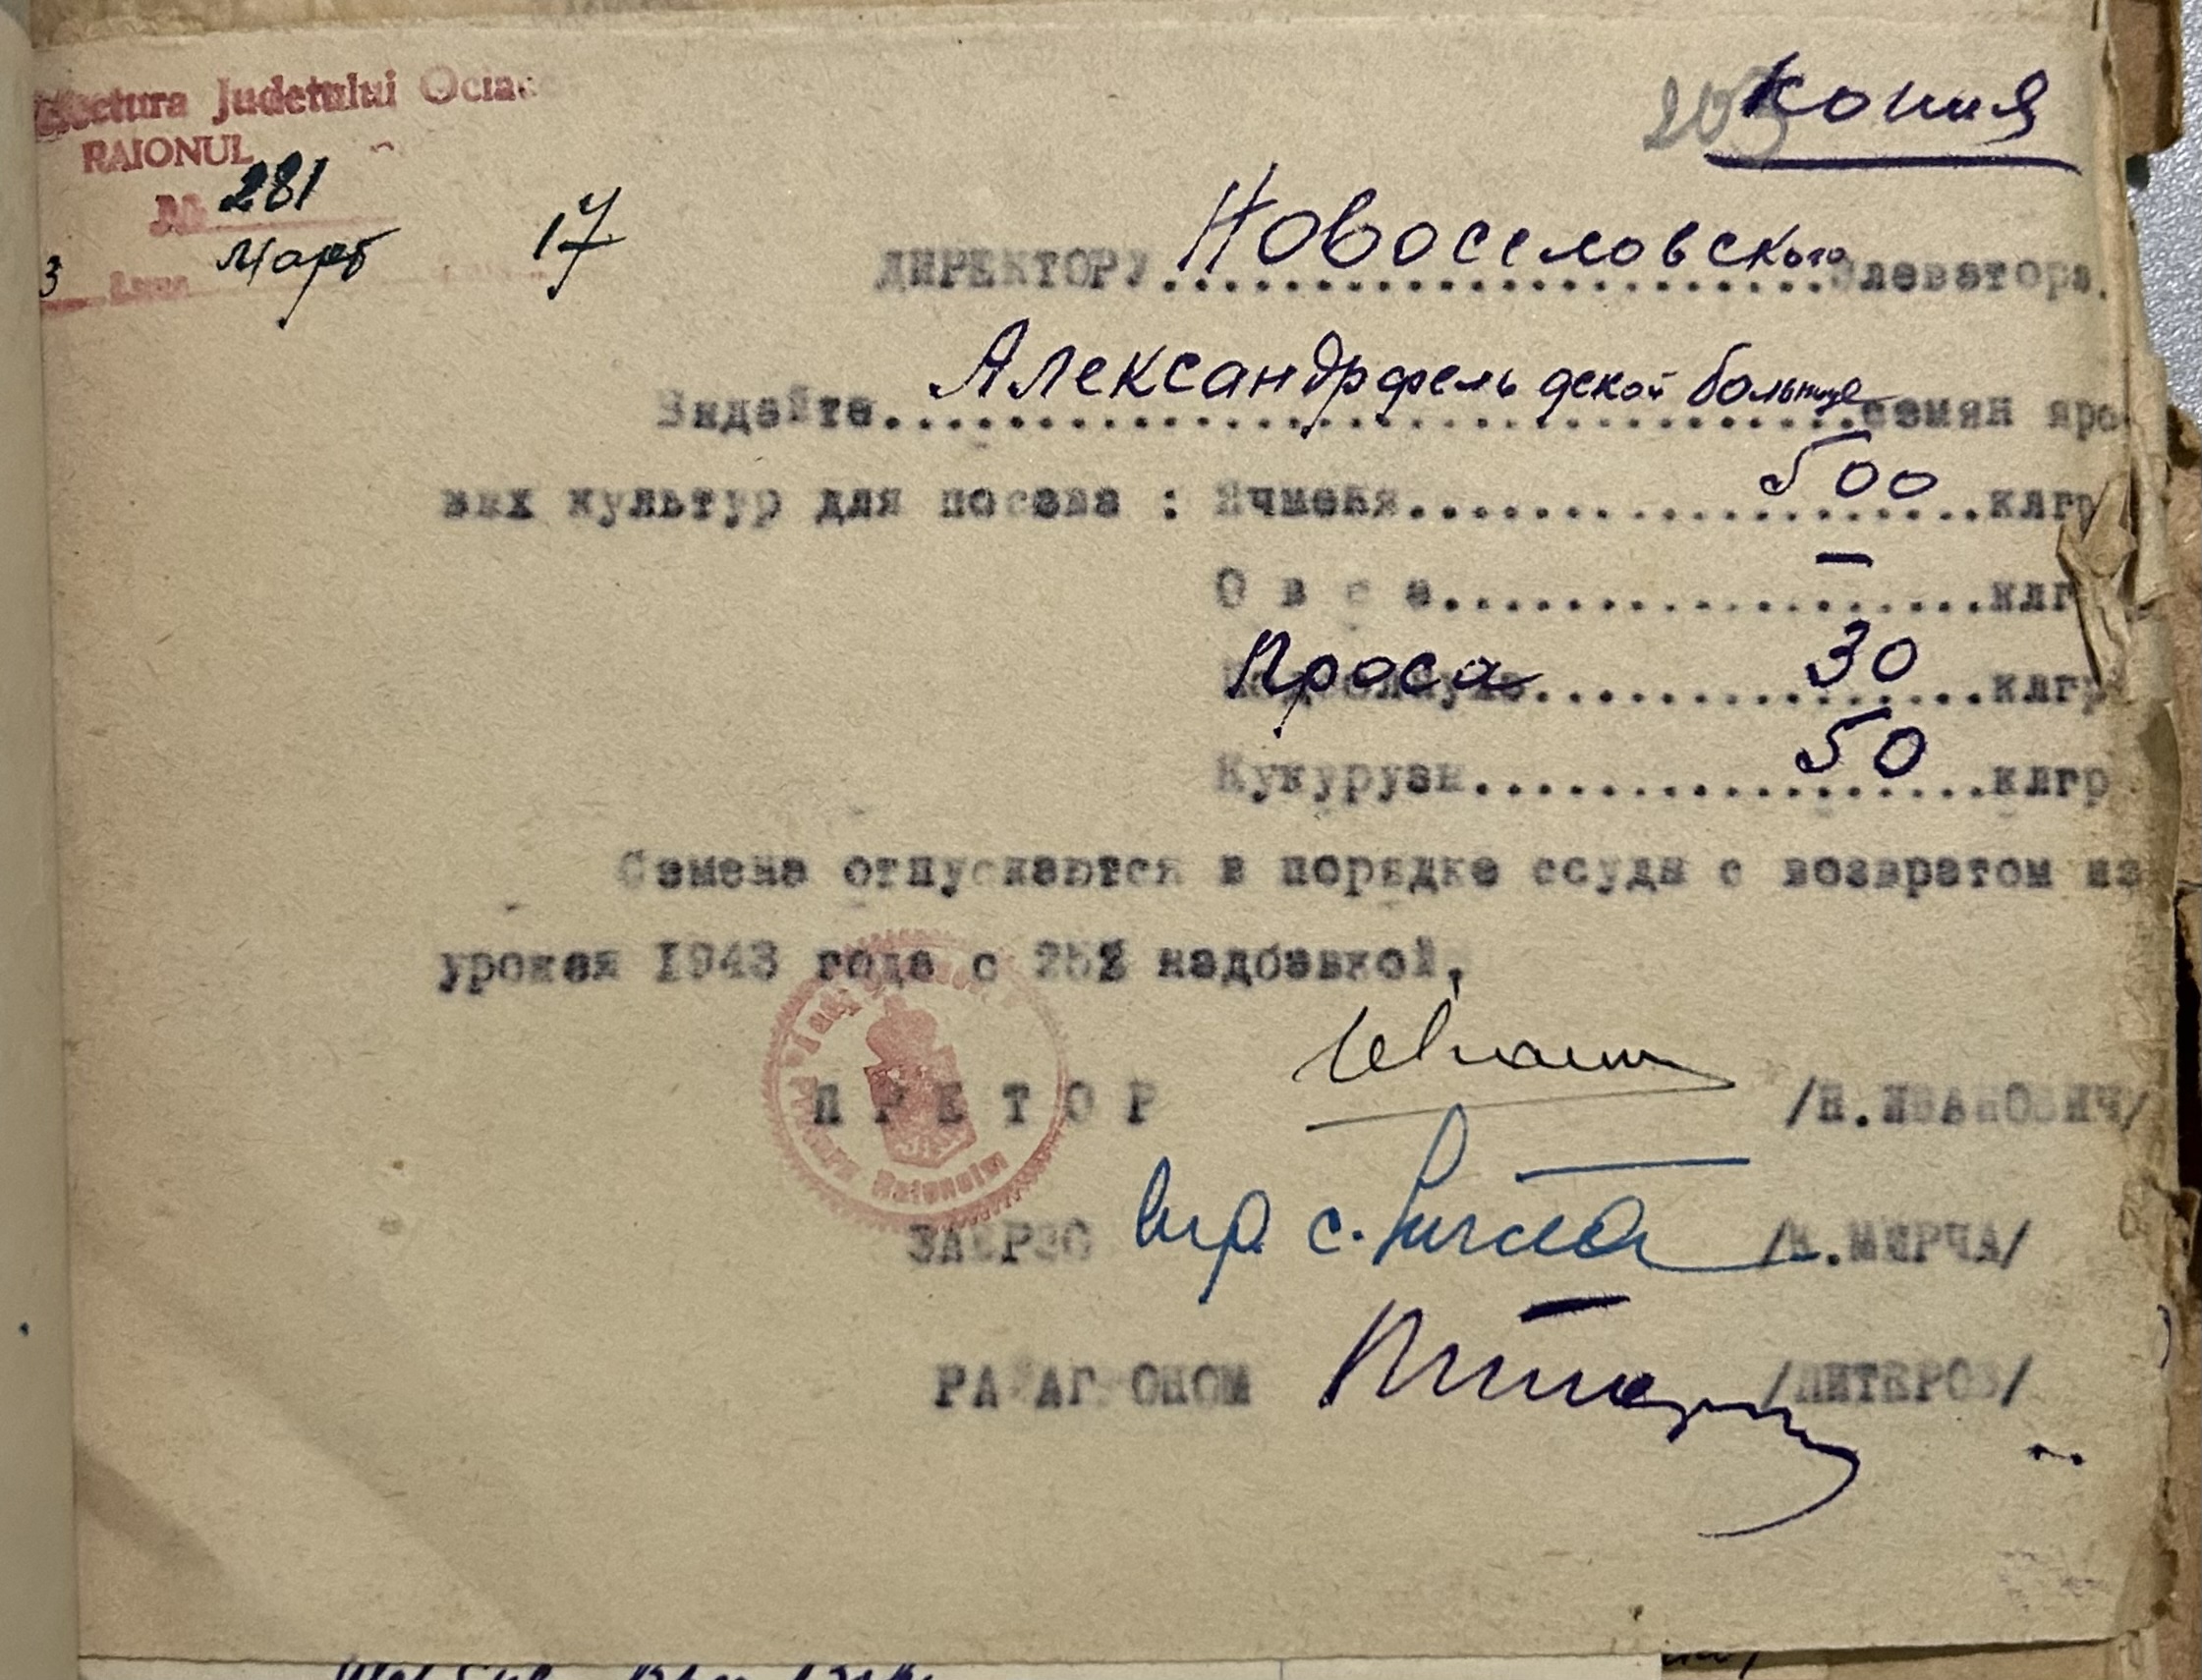 Prefectura Judetului Ociac
RAIONUL
№ 281
3 Март 17
203 Копия
ДИРЕКТОРУ Новоселовского Элеватора.
Выдайте Александрфельдской больнице семян яро-
вых культур для посева : Ячменя 500 клгр
О в с а — клгр
Проса 30 клгр
Кукурузы 50 клгр
Семена отпускаются в порядке ссуды с возвратом из
урожая 1943 года с 25% надбавкой.
Pretura Raionului
П Р Е Т О Р /Н.ИВАНОВИЧ/
ЗАВРЗО /МИРЧА/
РАЙАГРОНОМ /ПИТЕРОВ/